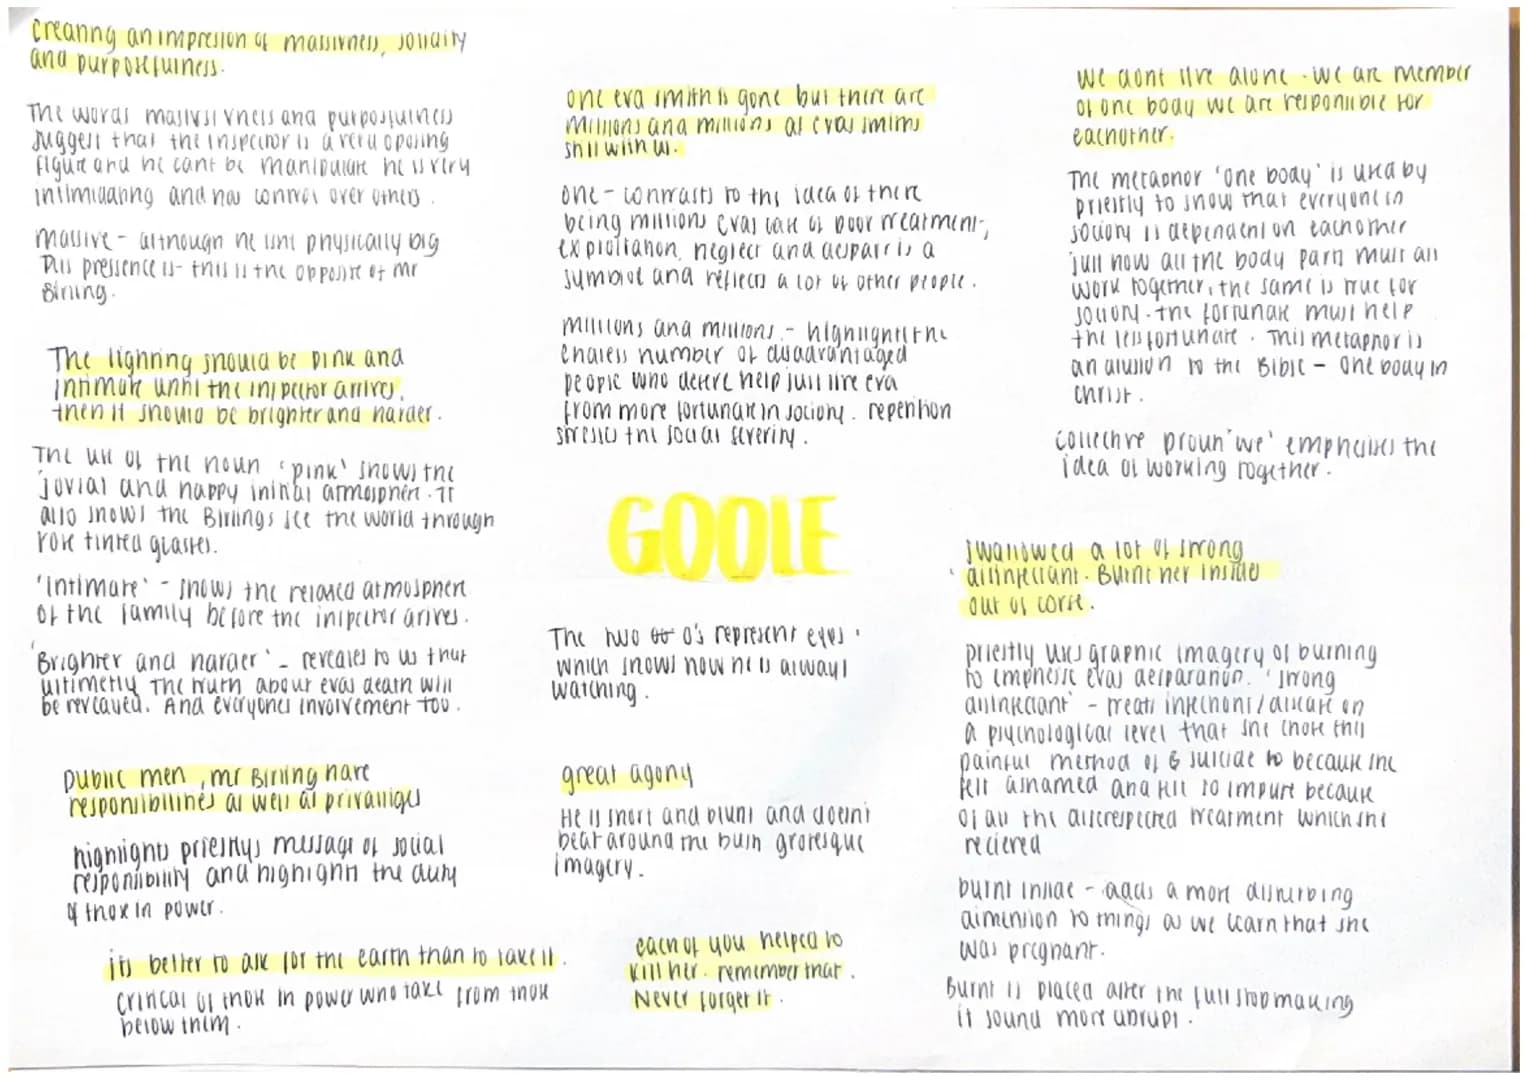 creating an impression of massivness, solidity
and purposefulness.
The words massivsivness and purposfulness
suggest that the inspector is a very oposing
figure and he cant be manipulate he is very
intimidating and has control over others.
Massive - although he isnt physically big
his pressence is - this is the opposite of mr
Birling.
The lighting should be pink and
intimate until the inspector arrives,
then it should be brighter and harder.
The use of the noun 'pink' shows the
jovial and happy initial atmosphere. It
also shows the Birlings see the world through
rose tinted glasses.
'Intimate' - shows the relaxed atmosphere
of the family before the inspector arives.
'Brighter and harder' - reveales to us that
ultimetly The truth about evas death will
be revealed. And everyones involvement too.
public men, mr Birling have
responsibilities as well as privaliges
highlights priestlys message of social
responsibility and highlights the duty
of those in power.
its better to ask for the earth than to take it.
critical of those in power who take from those
below them.
one eva smith is gone but there are
Millions and millions of evas smiths
still with us.
one - contrasts to the idea of there
being millions evas of poor treatment,
exploitation, neglect and despair is a
symbol and reflects a lot of other people.
millions and millions - highlights the
endless number of disadvantaged
people who deserve help just like eva
from more fortunate in society. repetition
stresses the social severity.
GOOLE
The two o's represent eyes
which shows how he is always
watching.
great agony
He is short and blunt and doesnt
beat around the bush grotesque
imagery.
each of you helped to
kill her. remember that.
Never forget it.
we dont live alone. we are member
of one body we are responsible for
eachother.
The metaphor 'one body' is used by
priestly to show that everyone in
society is dependent on eachother
just how all the body parts must all
work together, the same is true for
society. the fortunate must help
the less fortunate. This metaphor is
an alusion to the Bible - one body in
christ.
collective proun 'we' emphasises the
idea of working together.
swallowed a lot of strong
disinfectant. Burnt her inside
out of corse.
priestly uses graphic imagery of burning
to emphasise evas desparation. 'strong
disinfectant' - treats infections/disease on
a psychological level that she chose this
painful method of suicide to because she
felt ashamed and felt so impure because
of all the disrespected treatment which she
recieved
burnt inside - adds a more disturbing
dimension to things as we learn that she
was pregnant.
Burnt is placed after the full stop making
it sound more abrupt.